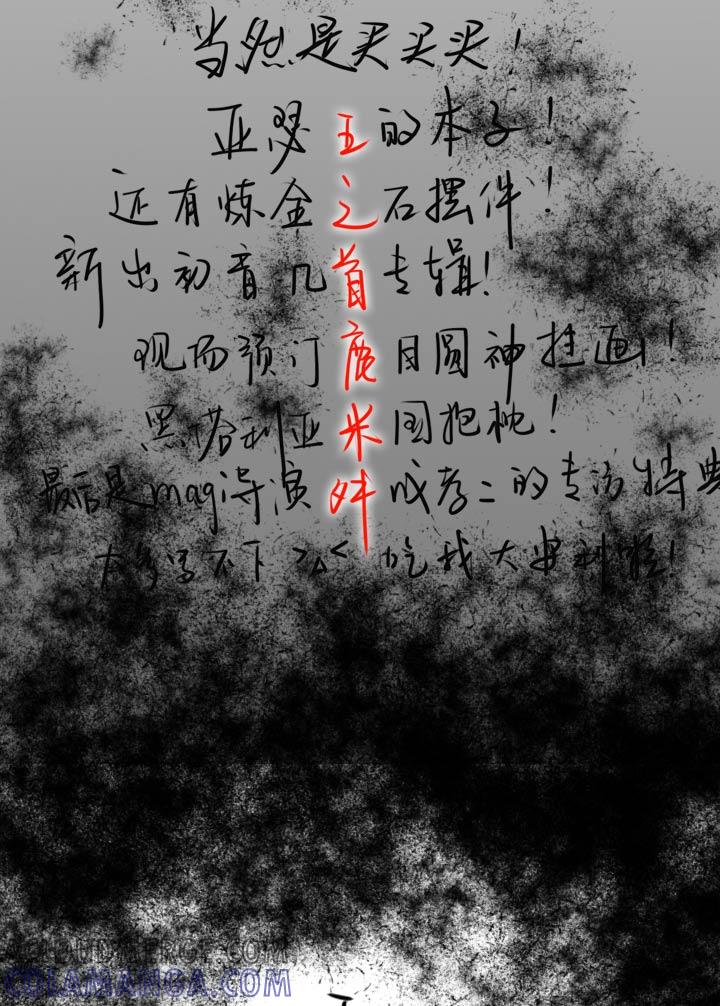 当然是买买买！
亚瑟王的本子！
还有炼金之石摆件！
新出初音几首专辑！
现场预订鹿目圆神挂画！
黑塔利亚米国抱枕！
最后是mag导演 成孝二的专访特典
太多写不下 >A< 吃我大安利啦！
COLAMANGA.COM